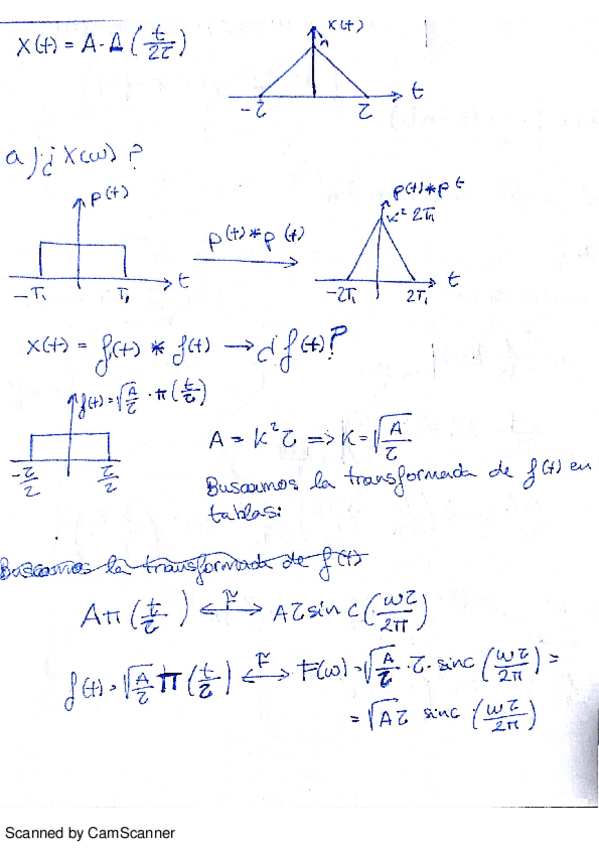 X(t) = A · Δ(t/2τ)
x(t)
A
-τ τ t
a) ¿X(ω)?
p(t)
-T₁ T₁ t
p(t) * p(t)
p(t) * p t
k² 2T₁
-2T₁ 2T₁ t
X(t) = f(t) * f(t) → ¿f(t)?
f(t) = √(A/τ) · π(t/τ)
-τ/2 τ/2
A = k²τ => k = √(A/τ)
Buscamos la transformada de f(t) en
tablas:
Buscamos la transformada de f(t)
Aπ(t/τ) ⟷ F Aτ sinc(ωτ/2π)
f(t) = √(A/τ) π(t/τ) ⟷ F F(ω) = √(A/τ) · τ · sinc(ωτ/2π) =
= √Aτ sinc · (ωτ/2π)
Scanned by CamScanner